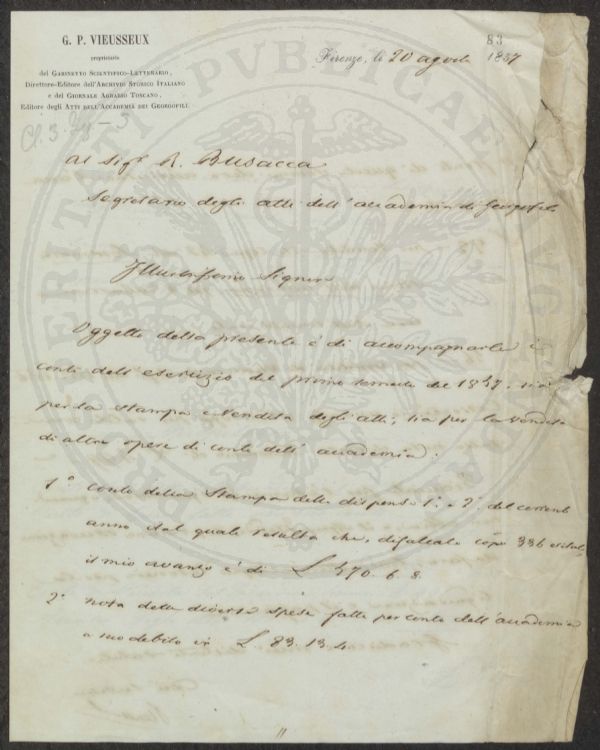 G. P. VIEUSSEUX
proprietario
del GABINETTO SCIENTIFICO-LETTERARIO,
Direttore-Editore dell'ARCHIVIO STORICO ITALIANO
e del GIORNALE AGRARIO TOSCANO,
Editore degli ATTI DELL'ACCADEMIA DEI GEORGOFILI.
83
Firenze, li 20 agosto 1857
Al Sigr. R. Busacca
Segretario degli atti dell'accademia di Georgofili
Illustrissimo Signore
Oggetto della presente è di accompagnarle i
conti dell'esercizio del primo semestre del 1857, sia
per la stampa e vendita degli atti, sia per la vendita
di altre opere di conto dell'accademia.
1° conto della stampa delle dispense 1a e 2a del corrente
anno dal quale resulta che, difalcate copie 336
il mio avanzo è di £ 570. 6. 8.
2° nota delle diverse spese fatte per conto dell'accademia
a suo debito in £ 83. 13. 4
PROSPERITATI PUBLICAE AUGENDAE